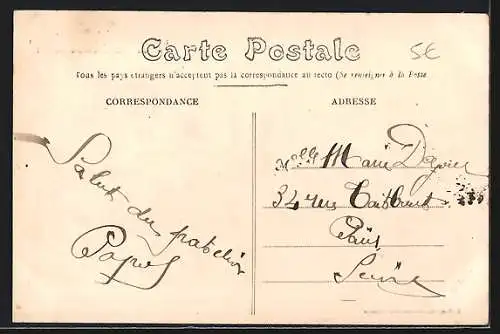 Carte Postale
5€
Tous les pays étrangers n'acceptent pas la correspondance au recto (Se renseigner à la Poste
CORRESPONDANCE
ADRESSE
Salut du
Melle Marie
34 rue Taitbout
Paris
Seine